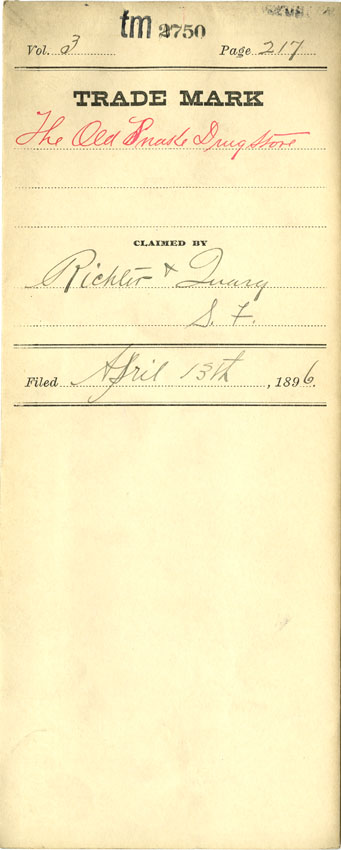 tm 2750
Vol. 3 Page 217
TRADE MARK
The Old Snake Drug Store
CLAIMED BY
Richter &
S. F.
Filed April 13th, 1896.